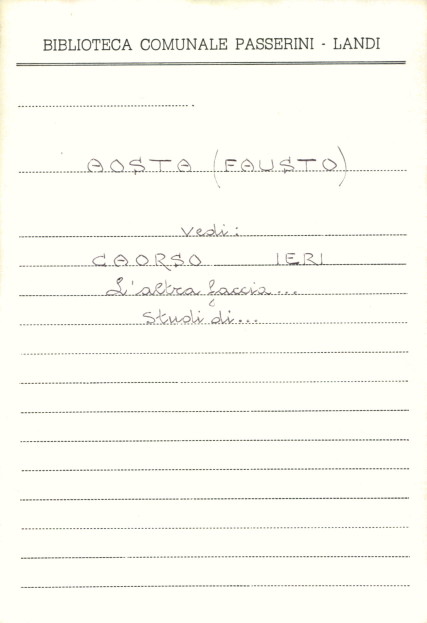 BIBLIOTECA COMUNALE PASSERINI - LANDI
AOSTA (FAUSTO)
Vedi:
CAORSO IERI
L'altra faccia...
Studi di...